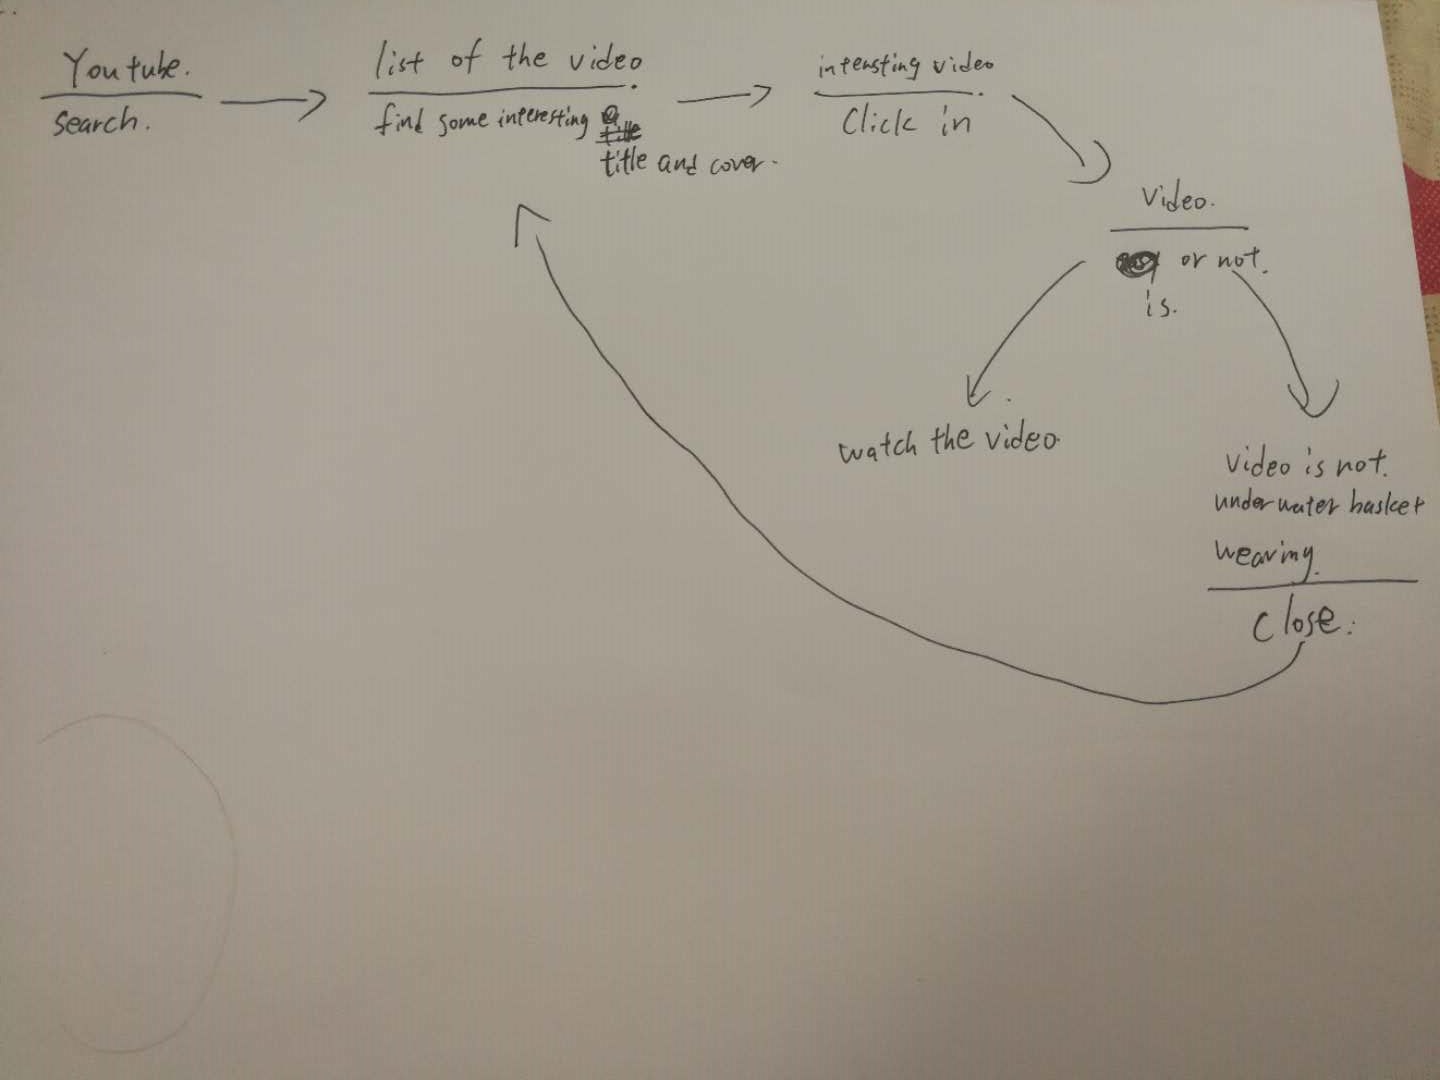 Youtube.
search.
list of the video
find some interesting
title
title and cover.
intersting video
Click in
Video.
or not.
is.
watch the video.
video is not.
underwater basket
wearing.
Close.